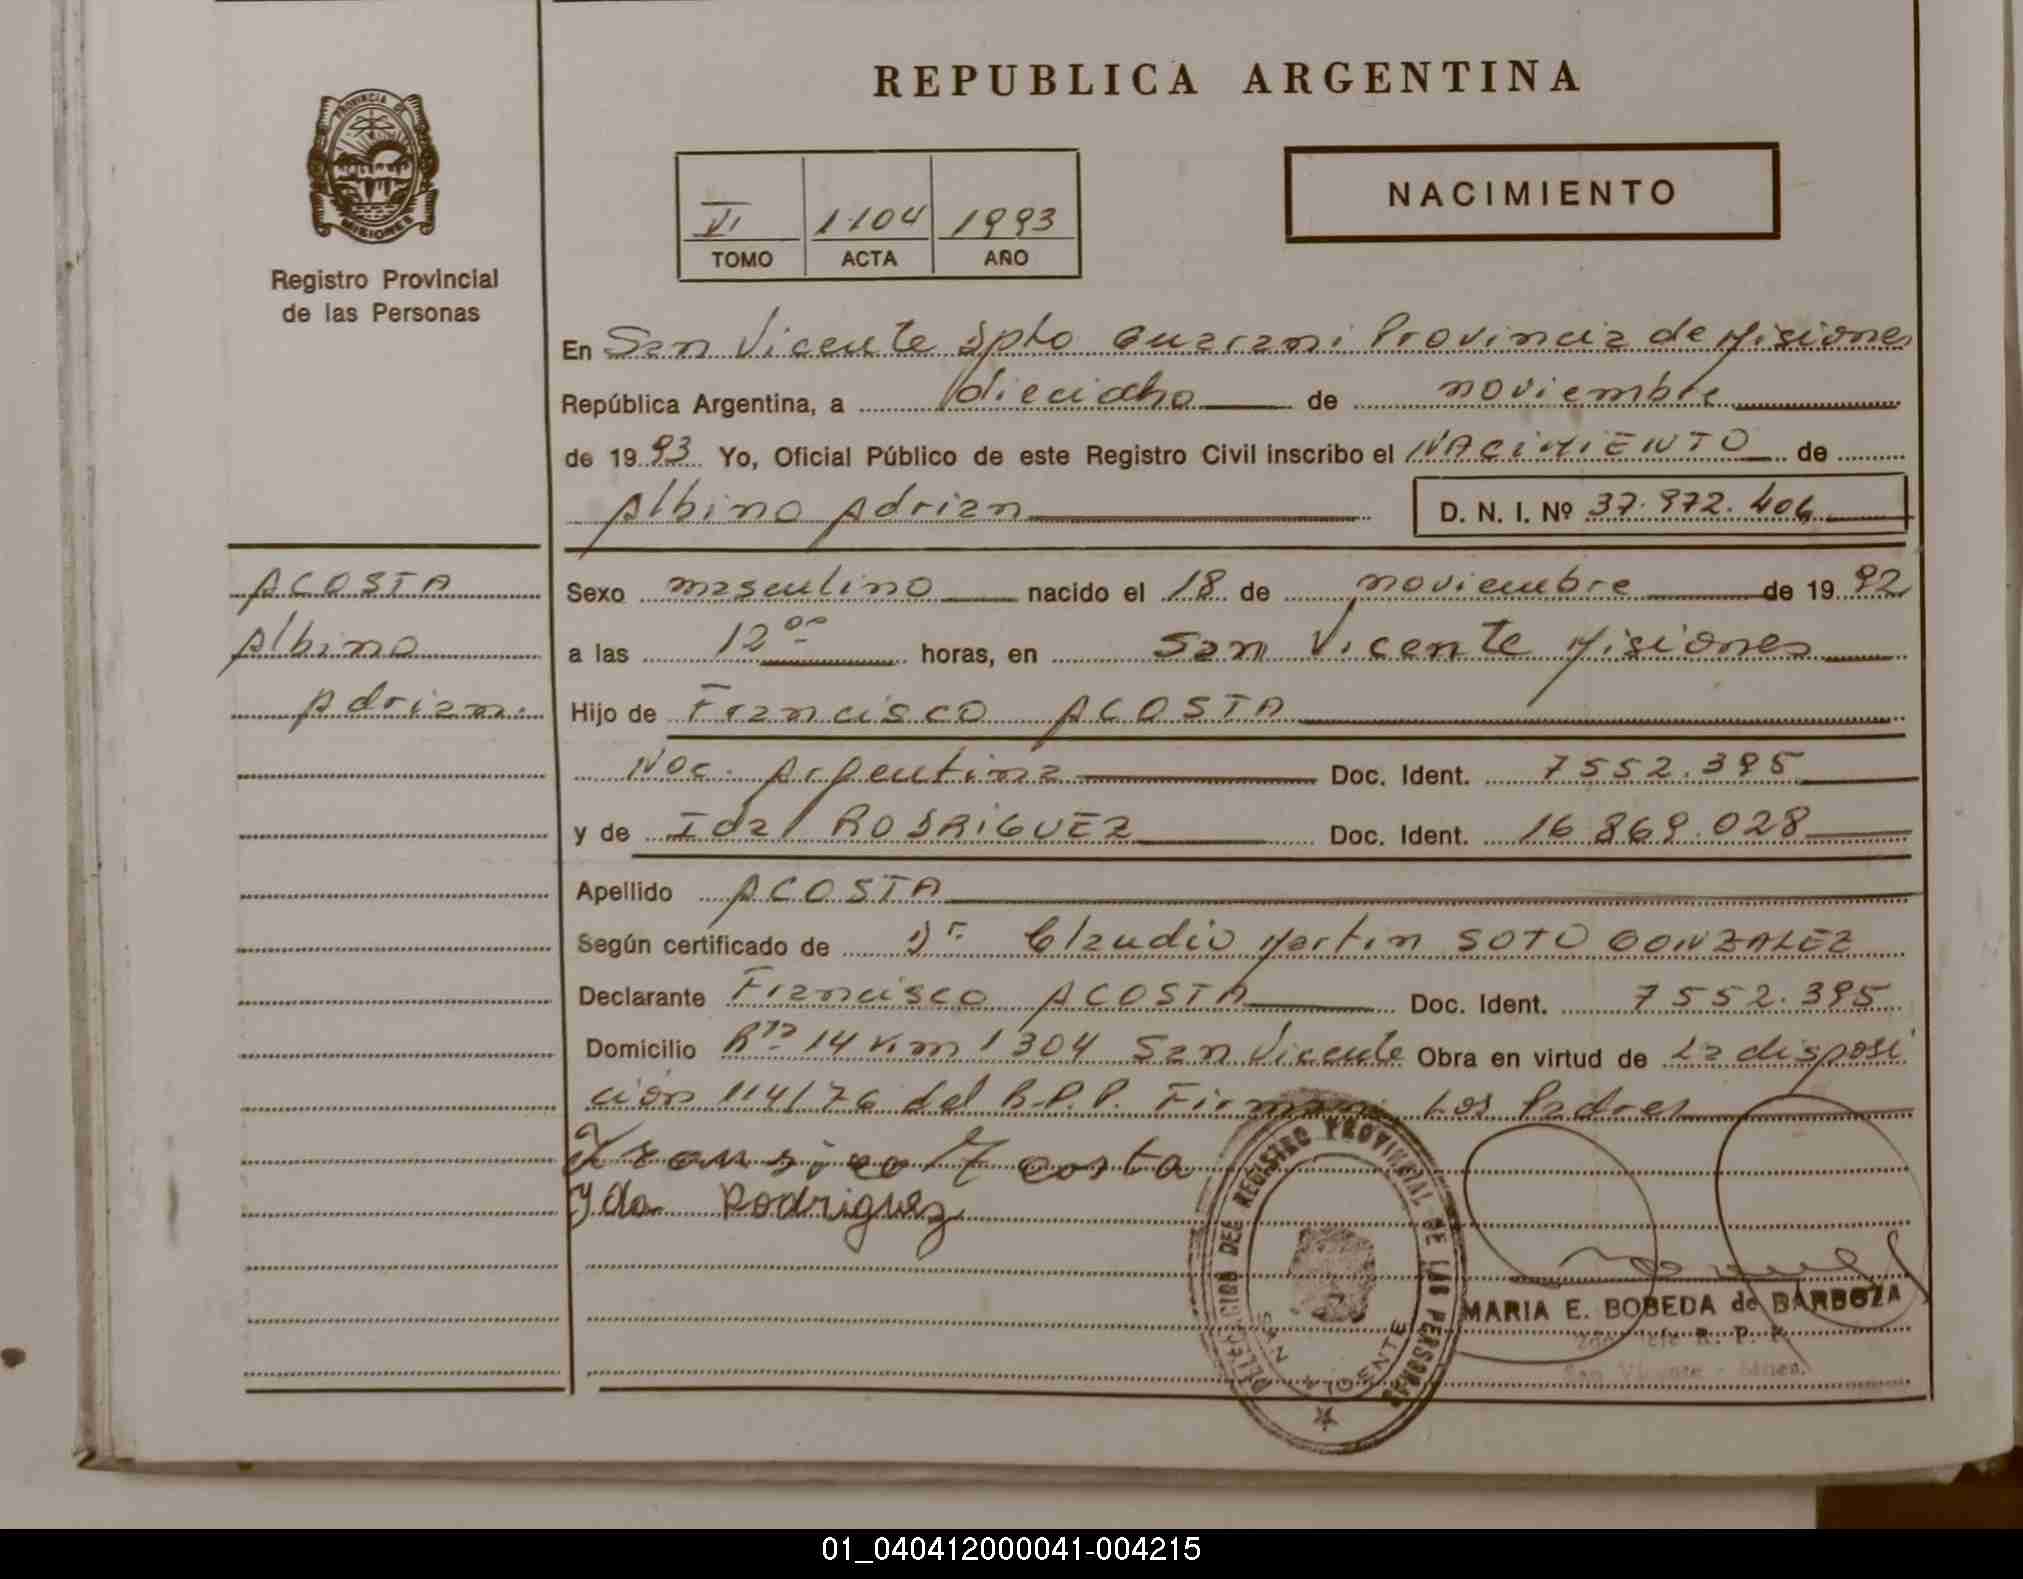 REPUBLICA ARGENTINA
PROVINCIA DE
MISIONES
Registro Provincial
de las Personas
VI 1104 1993
TOMO ACTA AÑO
NACIMIENTO
En San Vicente Dpto Guarani Provincia de Misiones
República Argentina, a dieciocho de noviembre
de 1993 Yo, Oficial Público de este Registro Civil inscribo el NACIMIENTO de
Albino Adrian D. N. I. Nº 37.972.406
ACOSTA
Albino
Adrian.
Sexo masculino nacido el 18 de noviembre de 1992
a las 12 00 horas, en San Vicente Misiones
Hijo de Francisco ACOSTA
Nac. Argentina Doc. Ident. 7552.395
y de Ida RODRIGUEZ Doc. Ident. 16.869.028
Apellido ACOSTA
Según certificado de Dr Claudio Martin SOTO GONZALEZ
Declarante Francisco ACOSTA Doc. Ident. 7552.395
Domicilio Rta 14 Km 1304 San Vicente Obra en virtud de La disposi
ción 114/76 del R.P.P. Firman Los Padres
Fransico Acosta
Yda Rodriguez
DELEGACION DEL REGISTRO PROVINCIAL DE LAS PERSONAS
SAN VICENTE
MARIA E. BOBEDA de BARBOZA
2do Jefe R. P. P.
San Vicente - Mnes.
01_040412000041-004215